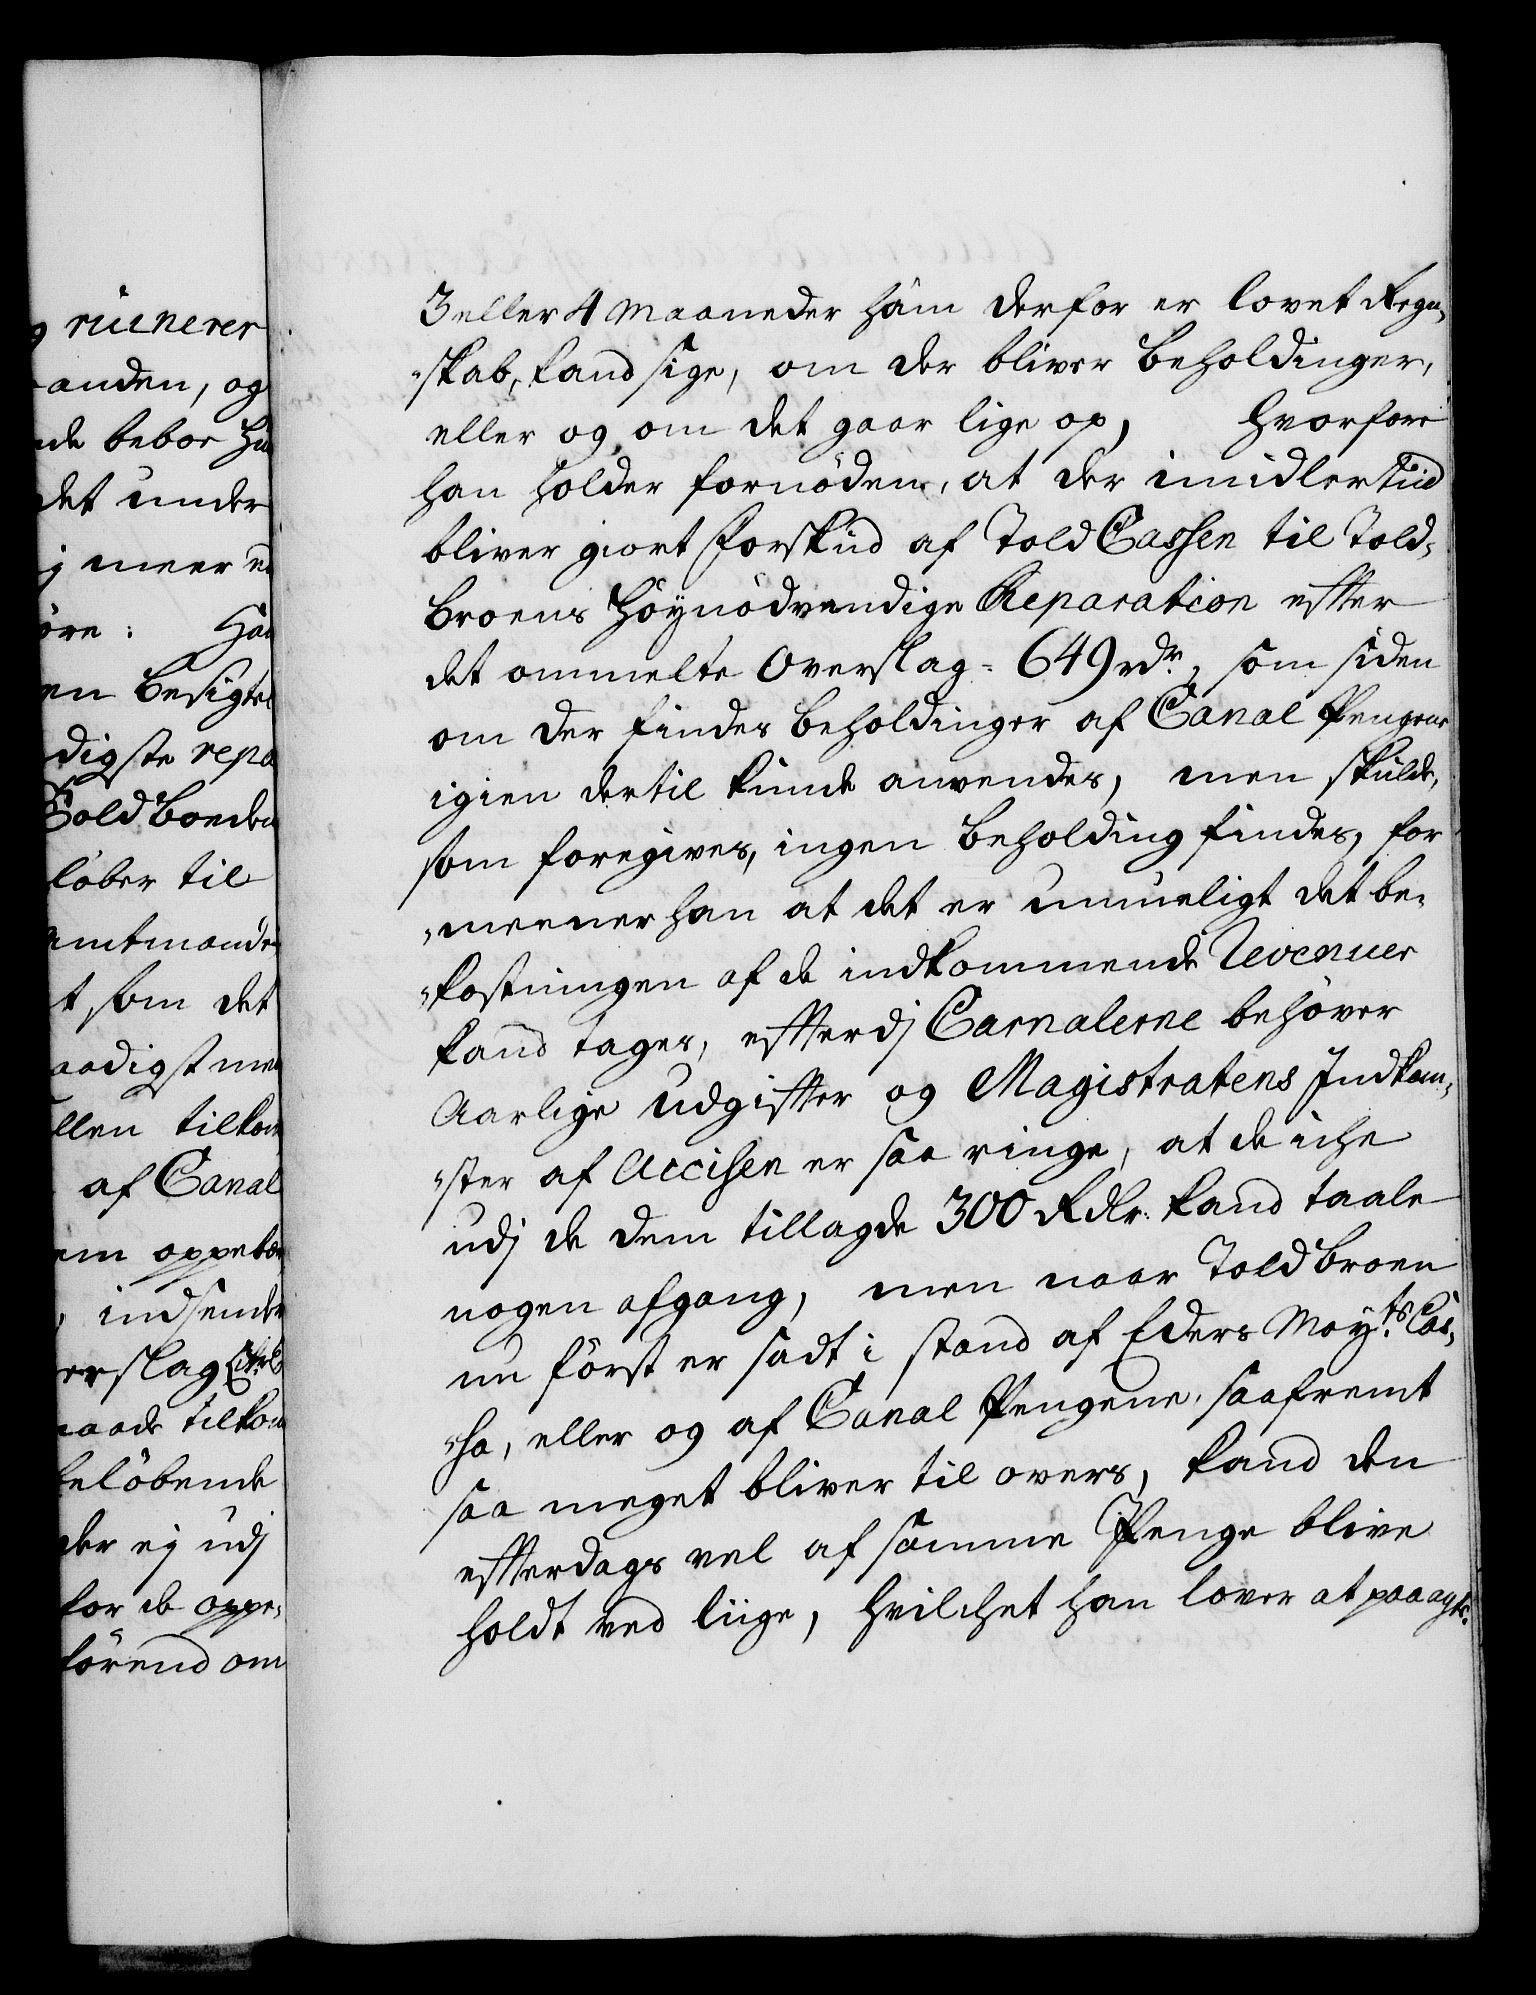 g ruinerer
anden, og
de beboe
det under
j meer
öre:
en besigte
digste repa
Told boeden
löber til
amtmands
t som det
aadigst
llen tilkom
af Canal
em oppebær
indsende
erslag
maade tilkom
beløbende
der ej udj
for de oppe¬
förend om
3 eller 4 Maaneder ham derfor er lovet Regn¬
„skab, kand sige, om der bliver beholdinger,
eller og om det gaar lige op, Hvorfore
han holder fornöden, at der imidlertiid
bliver giort Forskud af Told Cassen til Told¬
broens Höynödvendige Reparation effter
det ommelte Overslag = 649 rdr, som siden
om der findes beholdinger af Canal Pengene
igien dertil kunde anvendes, men skulde,
som foregives, ingen beholding findes, for
„meener han at det er umueligt det be¬
„kostningen af de indkommende Revenuer
kand tages, effterdj Carnalerne behöver
Aarlige udgiffter og Magistratens Indkom¬
„ster af Accisen er saa ringe, at de iche
udj de dem tillagde 300 Rdlr. kand taale
nogen afgang, men naar Told broen
nu först er sadt i stand af Eders May.ts Cas¬
„sa, eller og af Canal Pengene, saafremt
saa meget bliver til overs, kand den
effterdags vel af samme Penge blive
holdt ved liige, hvilchet han lover at paaagte.